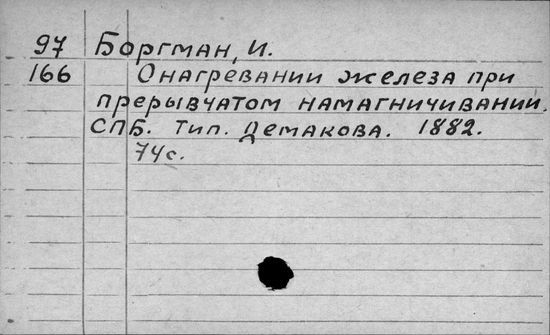 97 Боргман, И.
166 О нагревании железа при
прерывчатом намагничивании.
СПБ. Тип. Демакова. 1882.
74с.